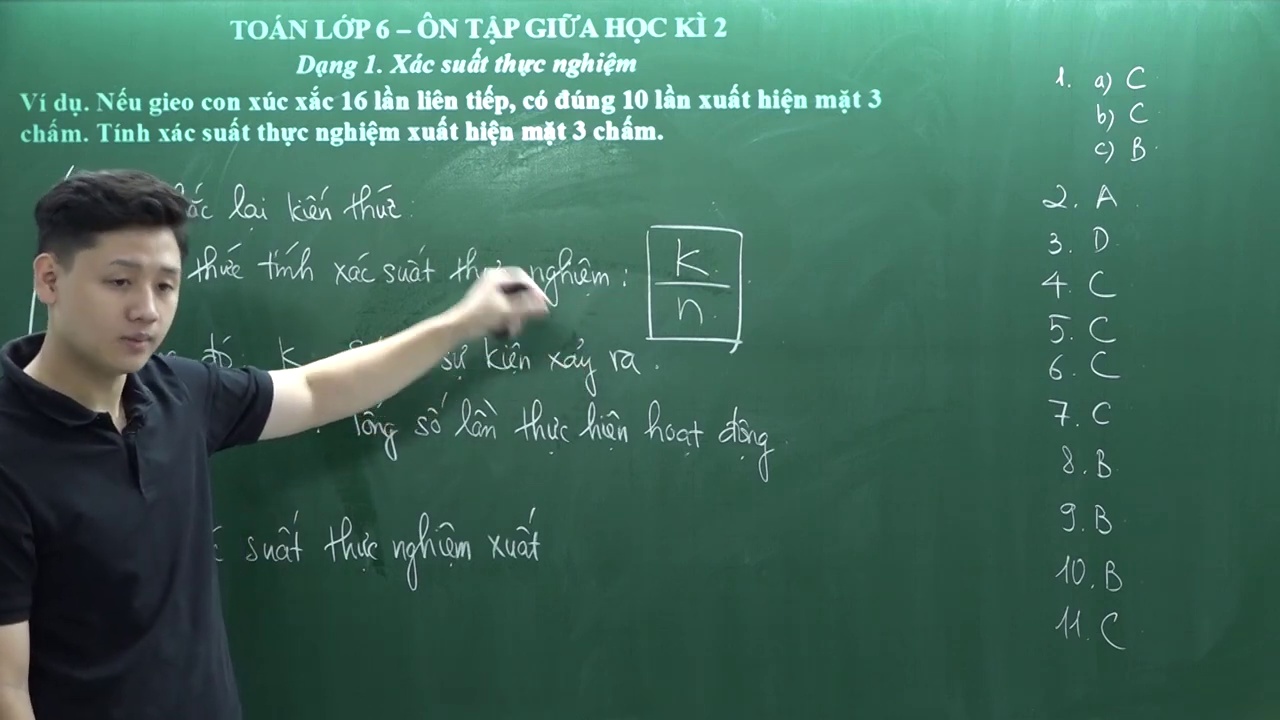 TOÁN LỚP 6 – ÔN TẬP GIỮA HỌC KÌ 2
Dạng 1. Xác suất thực nghiệm
Ví dụ. Nếu gieo con xúc xắc 16 lần liên tiếp, có đúng 10 lần xuất hiện mặt 3
chấm. Tính xác suất thực nghiệm xuất hiện mặt 3 chấm.
lại kiến thức.
thức tính xác suất thực nghiệm :
k
n
k sự kiện xảy ra.
Tổng số lần thực hiện hoạt động
suất thực nghiệm xuất
1. a) C
b) C
c) B
2. A
3. D
4. C
5. C
6. C
7. C
8. B
9. B
10. B
11. C